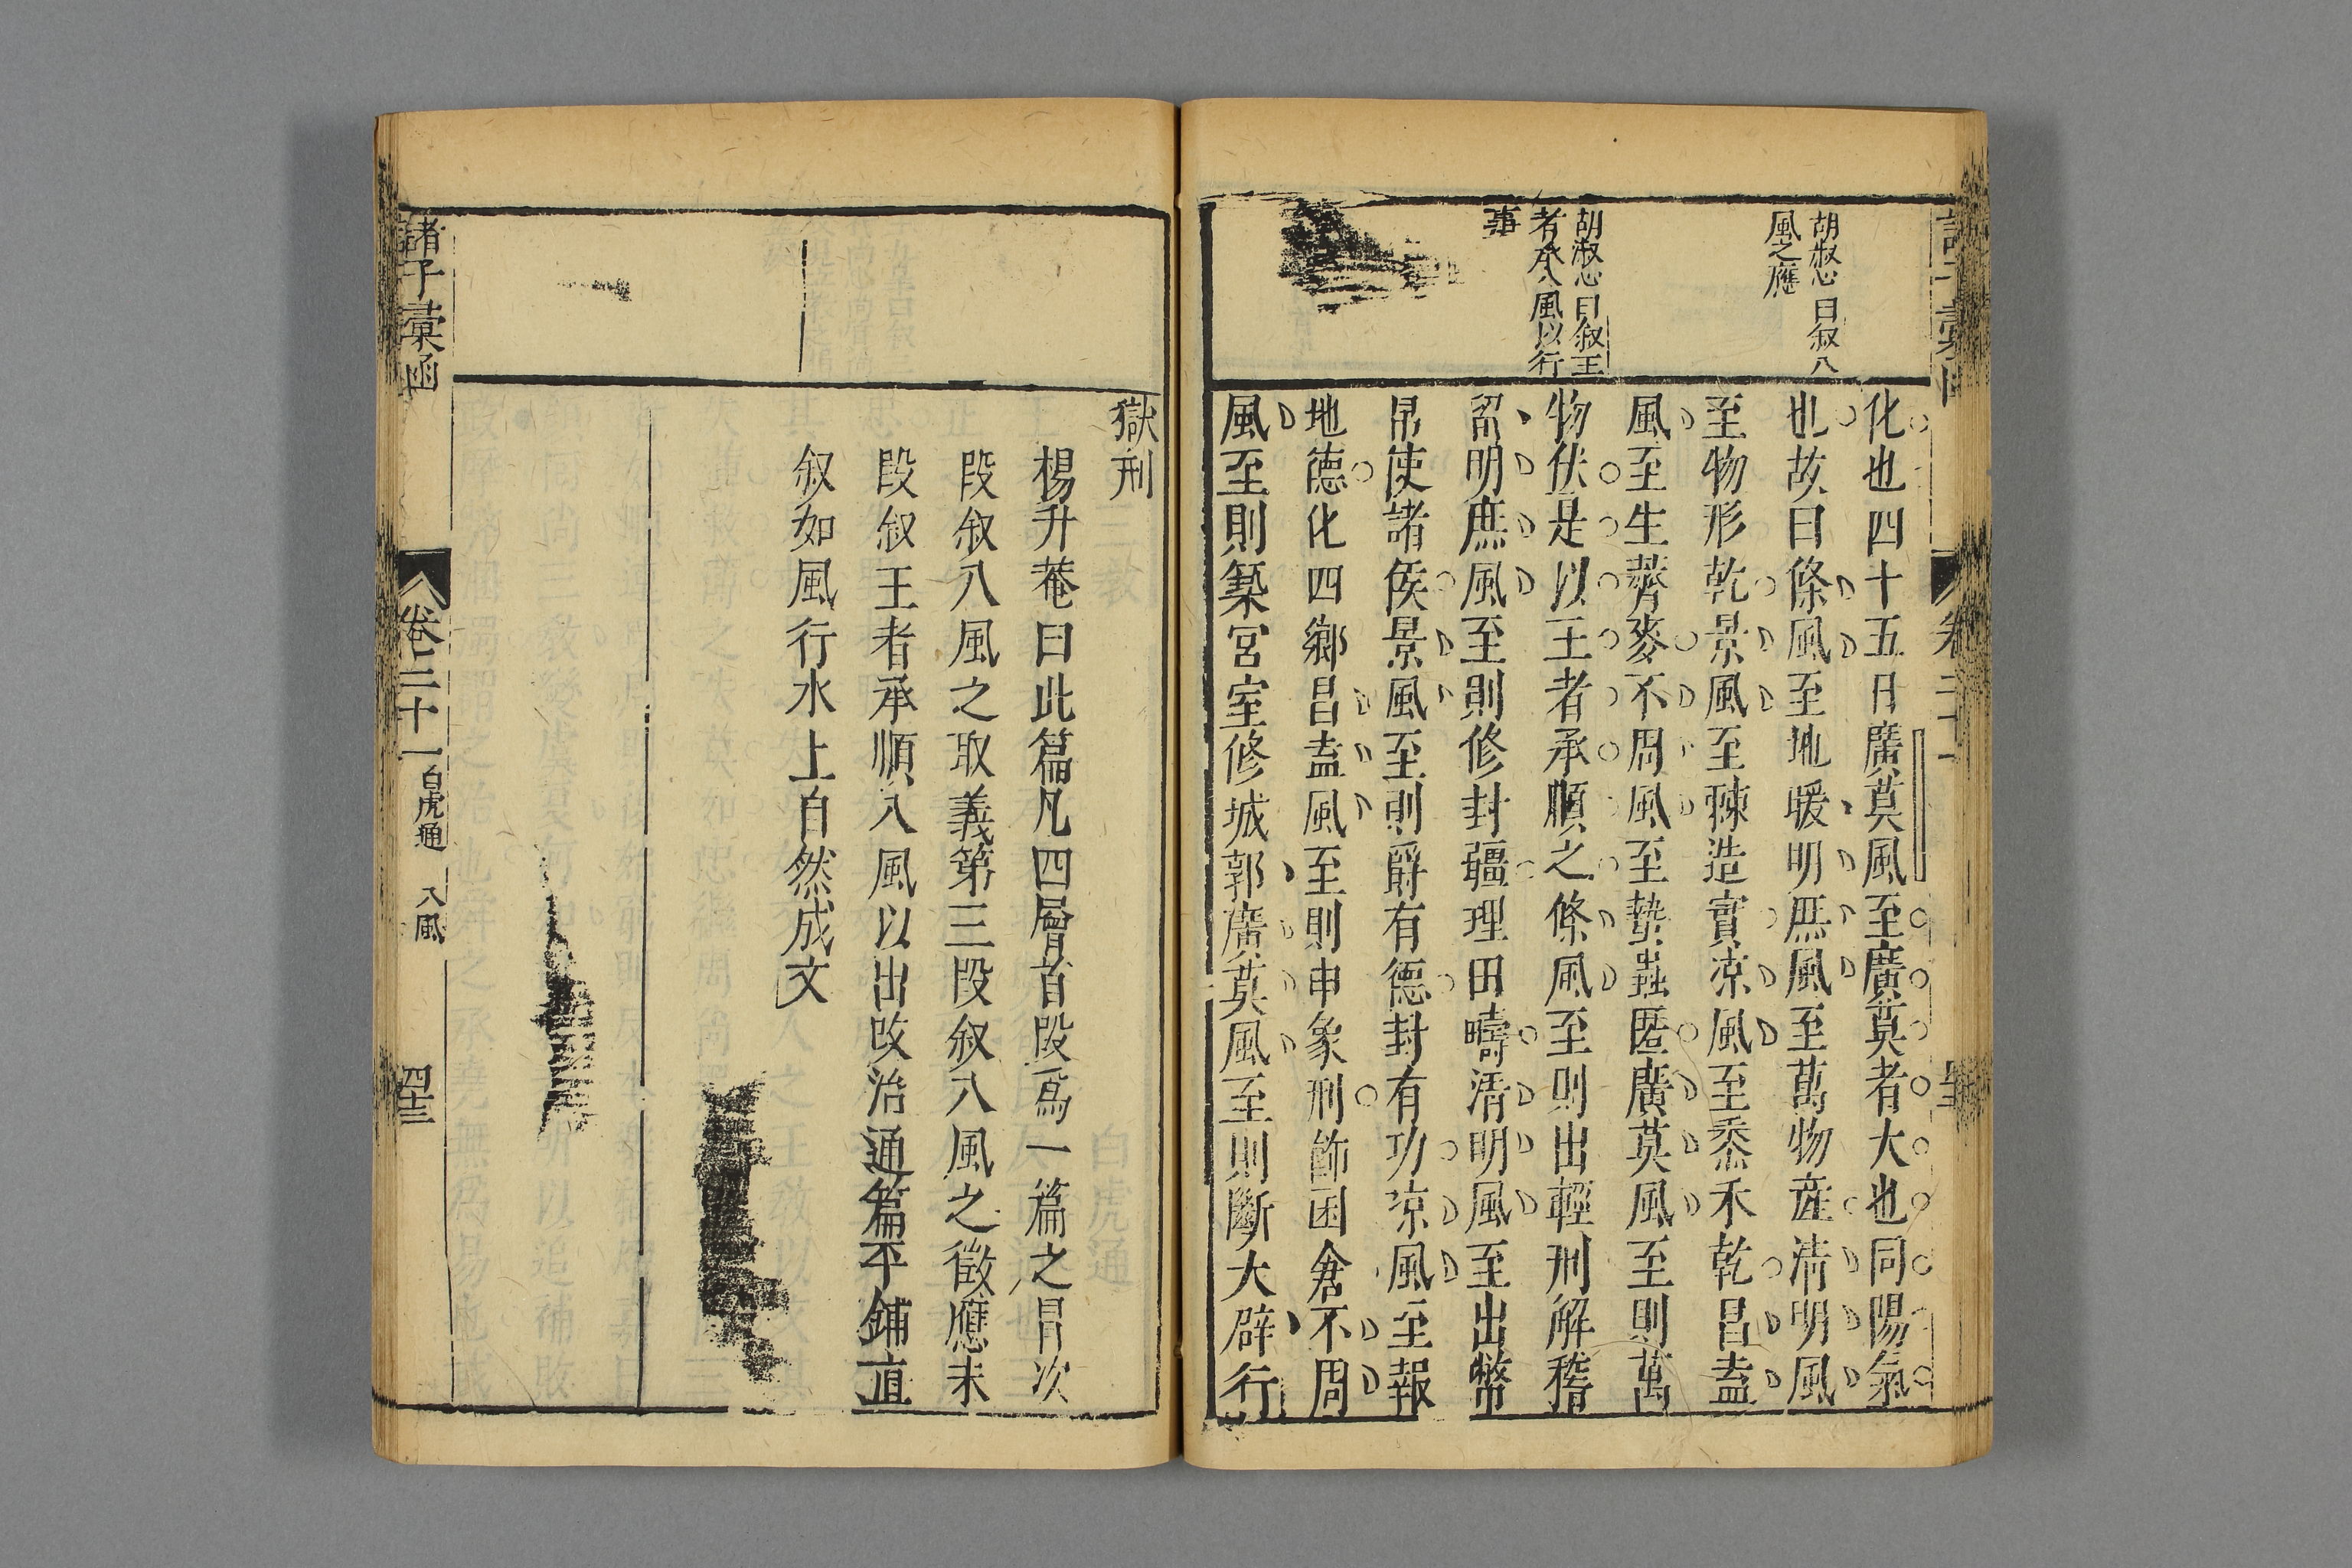 胡淑心曰叙八
風之應
胡淑心曰叙王
者承八風以行
事
化也四十五日廣莫風至廣莫者大也同陽氣
也故曰條風至地暖明庶風至萬物産清明風
至物形乾景風至棘造實凉風至黍禾乾昌盍
風至生薺麥不周風至蟄蟲匿廣莫風至則萬
物伏是以王者承順之條風至則出輕刑解稽
留明庶風至則修封疆理田疇清明風至出幣
帛使諸侯景風至則爵有德封有功凉風至報
地德化四鄉昌盍風至則申象刑飾囷倉不周
風至則築宮室修城郭廣莫風至則斷大辟行
獄刑
楊升菴曰此篇凡四層首段爲一篇之冒次
段叙八風之取義第三段叙八風之徵應末
段叙王者承順八風以出政治通篇平鋪直
叙如風行水上自然成文
諸子彙函
卷二十一
白虎通 八風
四十三